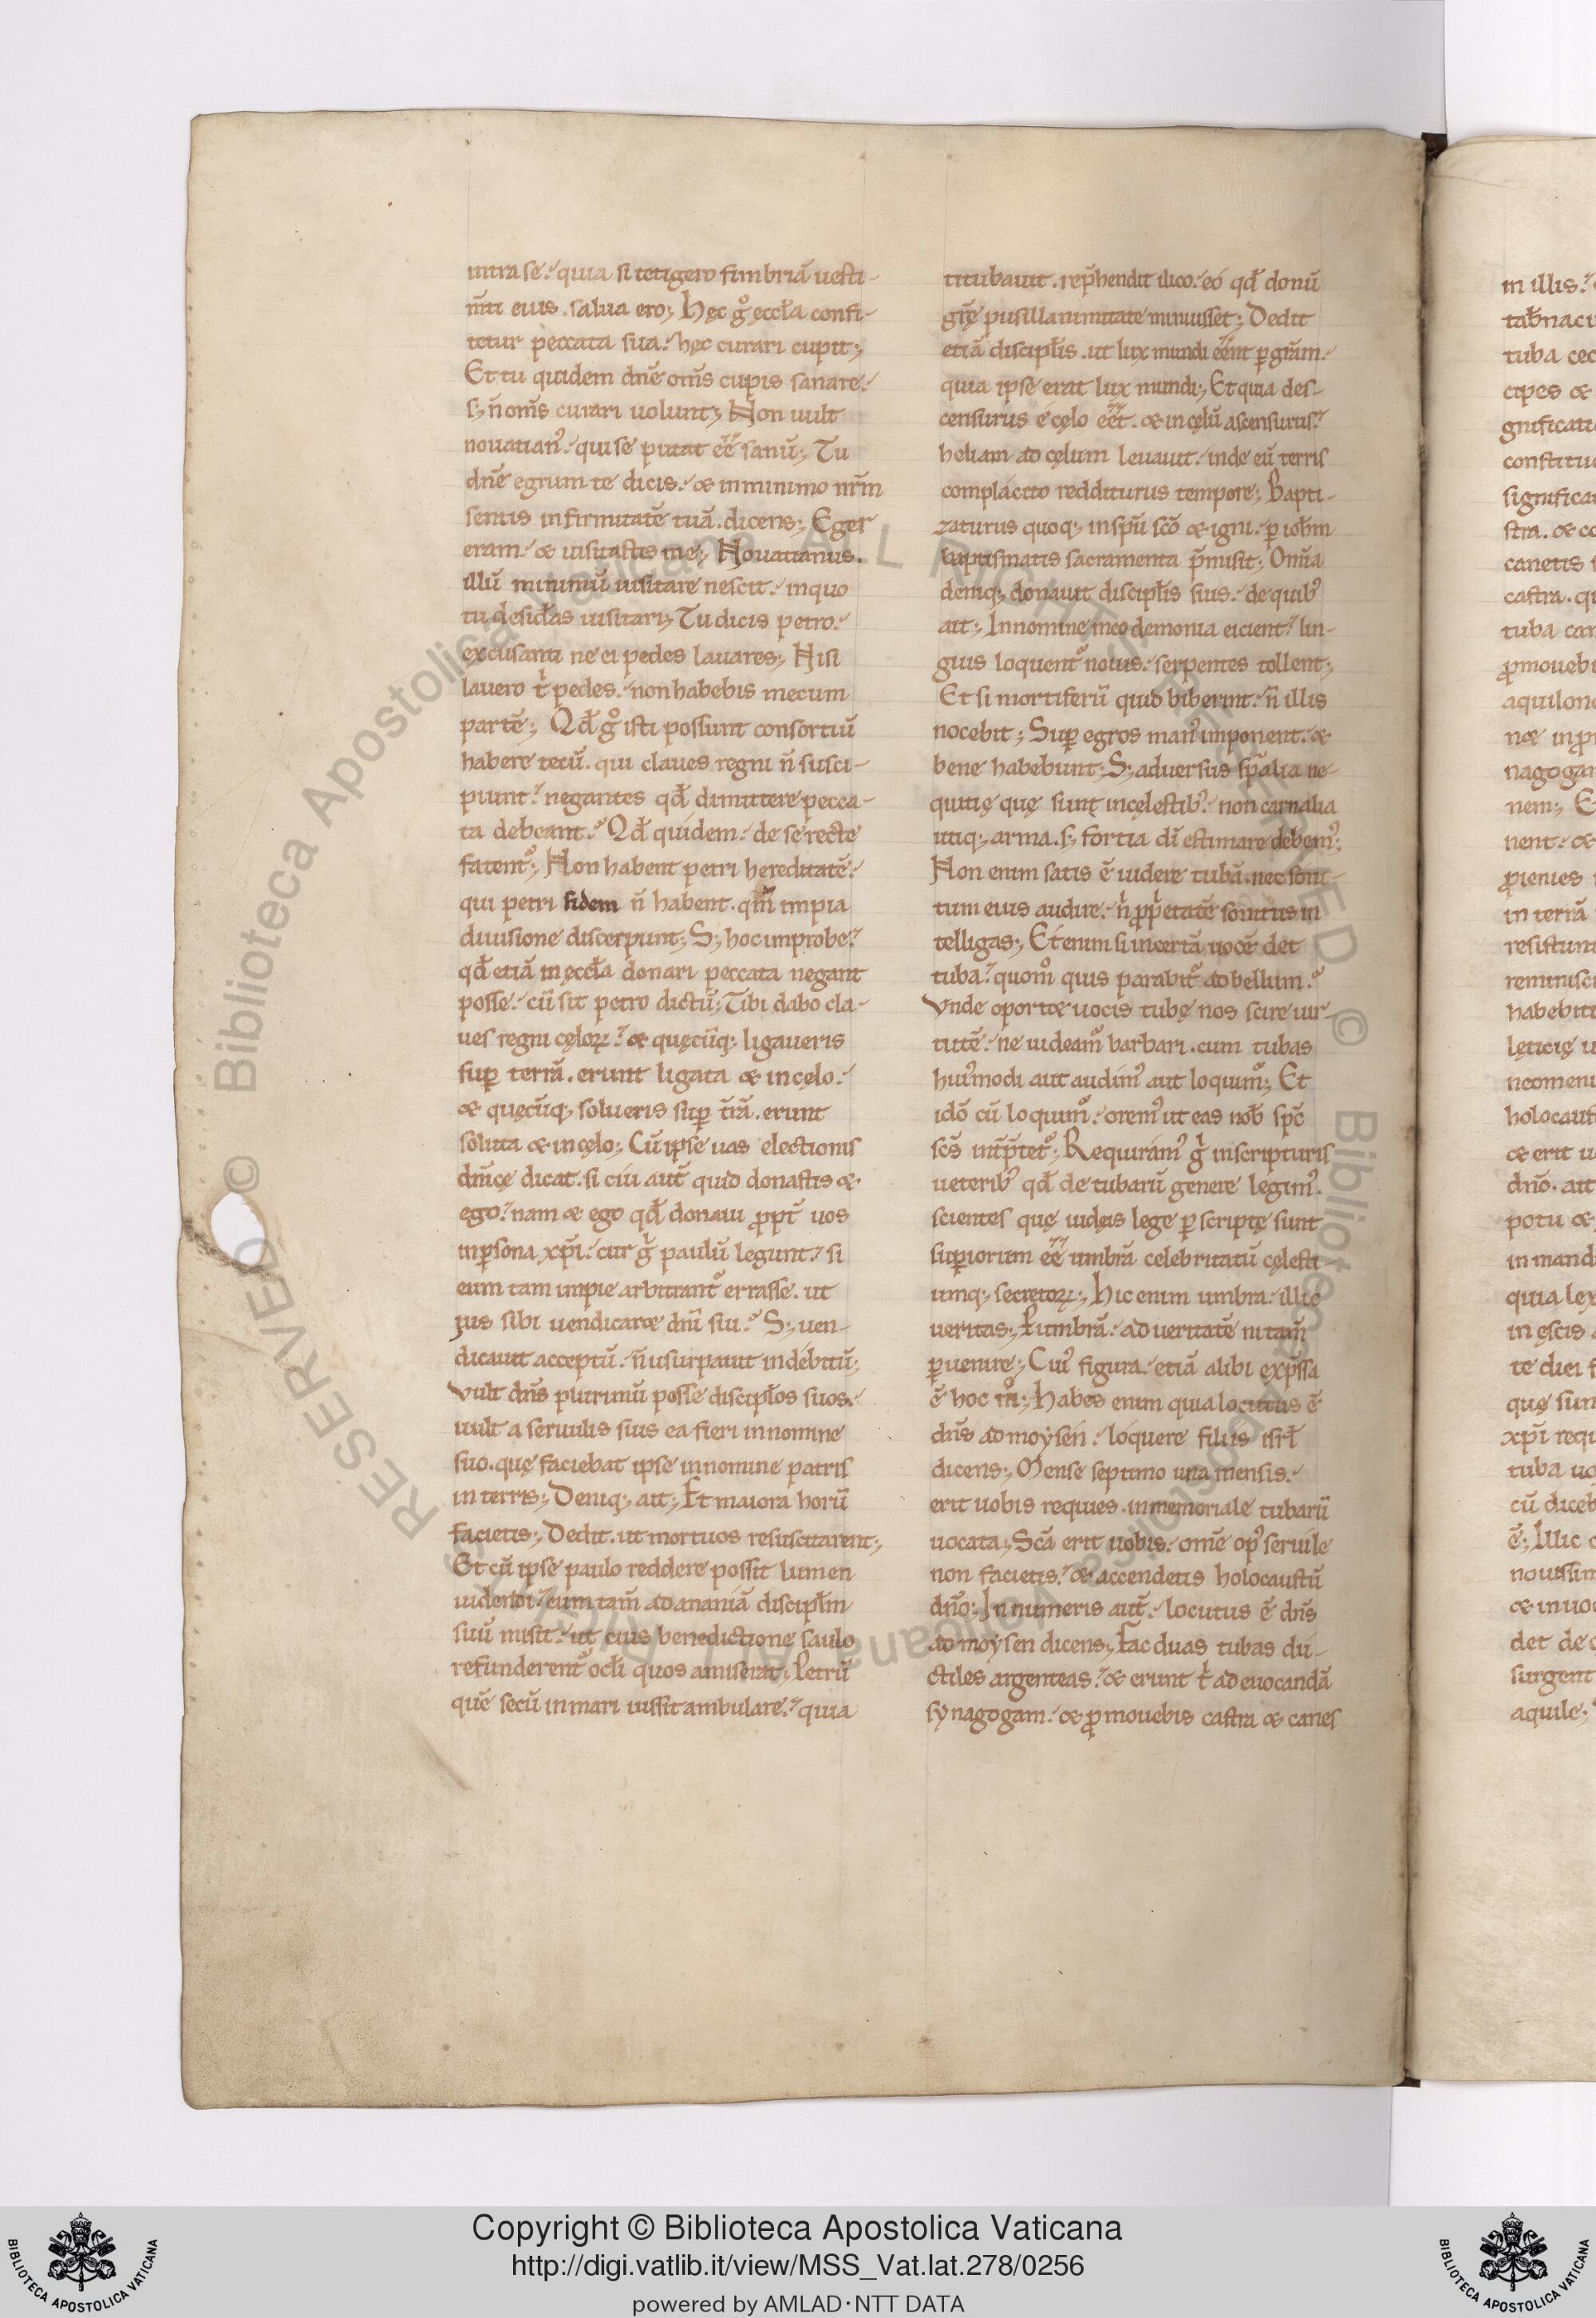 intra se. quia si tetigero fimbriā uesti-
m̄ti eius. salua ero; hęc gͦ ęccƚa confi-
tetur peccata sua. hęc curari cupit;
Et tu quidem dn̄e om̄s cupis sanare.
s; n̄ om̄s curari uolunt; Non uult
nouatian᾽. qui se putat eē̄ sanū; Tu
dn̄e egrum te dicis. & in minimo nr̄m
sentis infirmitatē tuā. dicens; Eger
eram. & uisitastis me; Nouatianus.
illū minimū uisitare nescit. in quo
tu desiđas uisitari; Tu dicis petro.
excusanti ne ei pedes lauares; Nisi
lauero t̍ pedes. non habebis mecum
partē; Qđ gͦ isti possunt consortiū
habere tecū. qui claues regni n̄ susci-
piunt. negantes qđ dimittere pecca-
ta debeant. Qđ quidem. de se recte
fatent᷑; Non habent petri hereditatē.
qui petri fidem n̄ habent. qm̄ impia
diuisione discerpunt; S; hoc improbe.
qđ etiā in ęccƚa donari peccata negant
posse. cū sit petro dictū; Tibi dabo cla-
ues regni cęloꝝ. & quęcūq; ligaueris
suꝑ terrā. erunt ligata & in cęlo.
& quęcūq; solueris suꝑ t̄rā. erunt
soluta & in cęlo; Cū ipse uas electionis
dn̄icę dicat. si cui aut̄ quid donastis &
ego. nam & ego qđ donaui ꝓpt̄ uos
in ꝑsona xp̄i. cur g̍ paulū legunt. si
eum tam impie arbitrant᷑ errasse. ut
ius sibi uendicaret dn̄i sui. S; uen-
dicauit acceptū. n̄ usurpauit indebitū;
Vult dn̄s plurimū posse discipƚos suos.
uult a seruulis suis ea fieri in nomine
suo. quę faciebat ipse in nomine patris
in terris; Deniq; ait; Et maiora horū
facietis; Dedit. ut mortuos resuscitarent;
Et cū ipse paulo reddere possit lumen
uidendi. cum tam̄ ad ananiā discipƚm
suū misit. ut eius benedictione saulo
refunderent᷑ ocƚi quos amiserat; Petrū
quē secū in mari iussit ambulare. quia
titubauit. rep̄hendit ilico. eo qđ donū
gr̄ę pusillanimitate minuisset; Dedit
etiā discipƚis. ut lux mundi eēnt ꝑ gr̄am.
quia ipse erat lux mundi; Et quia des-
censurus é cęlo eēt. & in cęlū ascensurus.
heliam ad cęlum leuauit. inde eū terris
complacito redditurus tempore; Bapti-
zaturus quoq; in sp̄u sc̄o & igni. ꝑ ioħm
baptismatis sacramenta p̄misit; Om̄a
deniq; donauit discipƚis suis. de quib᾽
ait; In nomine meo demonia eicient. lin-
guis loquent᷑ nouis. serpentes tollent;
Et si mortiferū quid biberint. n̄ illis
nocebit; Suꝑ egros man᾽ imponent. &
bene habebunt; S; aduersus sp̄alia ne-
quitię quę sunt in cęlestib᾽. non carnalia
utiq; arma. s; fortia dī estimare debem᾽;
Non enim satis ē uidere tubā. nec soni-
tum eius audire. n̍ ꝓp̍etatē sonitus in
telligas; Etenim si incertā uocē det
tuba. quom̊ quis parabit᷑ ad bellum.
Vnde oportet uocis tubę nos scire uir-
tutē. ne uideam᷑ barbari. cum tubas
hui᾽modi aut audim᾽ aut loquim᷑; Et
idō cū loquim᷑. orem᾽ ut eas nob̄ sp̄c
sc̄s int̄p̄tet᷑; Requiram᾽ g̍ in scripturis
ueterib᾽ qđ de tubarū genere legim᾽.
scientes quę iudęis lege ꝑ scriptę sunt
suꝑiorum eē̄ umbrā celebritatū cęlesti-
umq; secretoꝝ; hic enim umbra. illic
ueritas; Ꝑ umbrā. ad ueritatē nitam̄
ꝑuenire; Cui᾽ figura. etiā alibi exp̄ssa
ē hoc m̊; habes enim quia locutus ē
dn̄s ad moysen. loquere filiis isrƚ
dicens; Mense septimo una mensis.
erit uobis requies. in memoriale tubarū
uocata; Scā erit uobis. om̄e op᾽ seruile
non facietis. & accendetis holocaustū
dn̄o; In numeris aut̄. locutus ē dn̄s
ad moysen dicens; Fac duas tubas du-
ctiles argenteas. & erunt t̍ ad euocandā
synagogam. & ꝓmouebis castra & canes
in illis.
constitue
in terrā
Copyright © Biblioteca Apostolica Vaticana
http://digi.vatlib.it/view/MSS_Vat.lat.278/0256
powered by AMLAD·NTT DATA
BIBLIOTECA APOSTOLICA VATICANA
BIBLIOTECA APOSTOLICA VATICANA